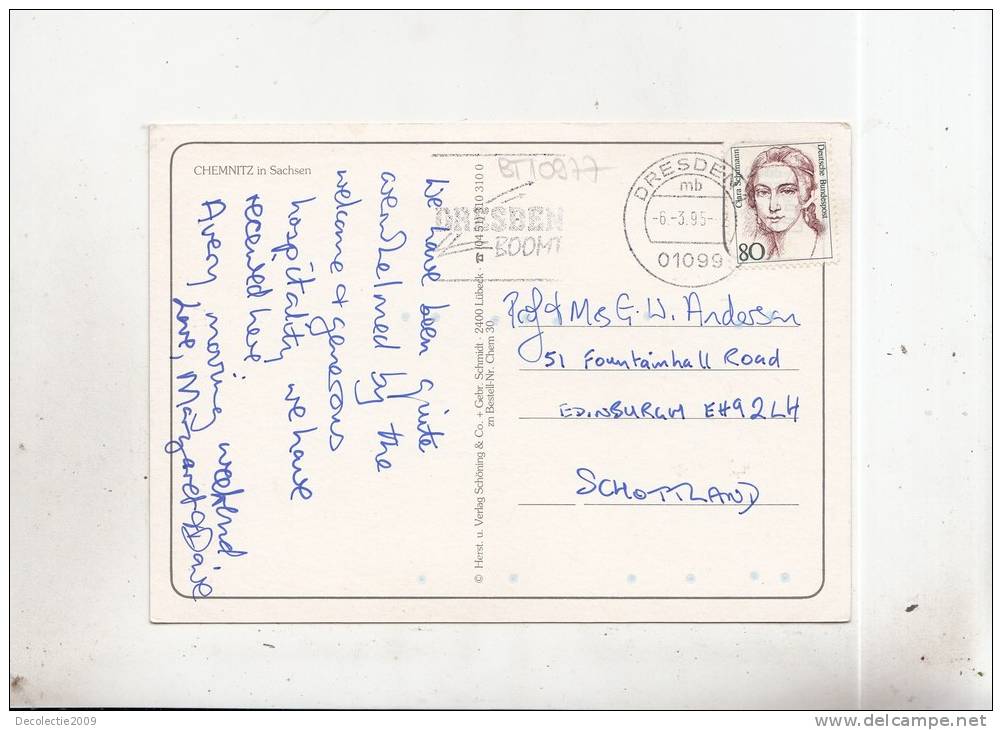 CHEMNITZ in Sachsen
We have been quite
overwhelmed by the
welcome & generous
hospitality we have
received here.
A very moving weekend
Love, Margaret & Dave
© Herst. u. Verlag Schöning & Co. + Gebr. Schmidt · 2400 Lübeck · ☎ (04 51) 310 310 0
zn Bestell-Nr. Chem 30
BT10877
DRESDEN
BOOMT
DRESDEN
mb
-6.-3.95-
01099
Clara Schumann
Deutsche Bundespost
80
Prof & Mrs G. W. Anderson
51 Fountainhall Road
EDINBURGH EH9 2LH
SCHOTTLAND
Decolectie2009
www.delcampe.net